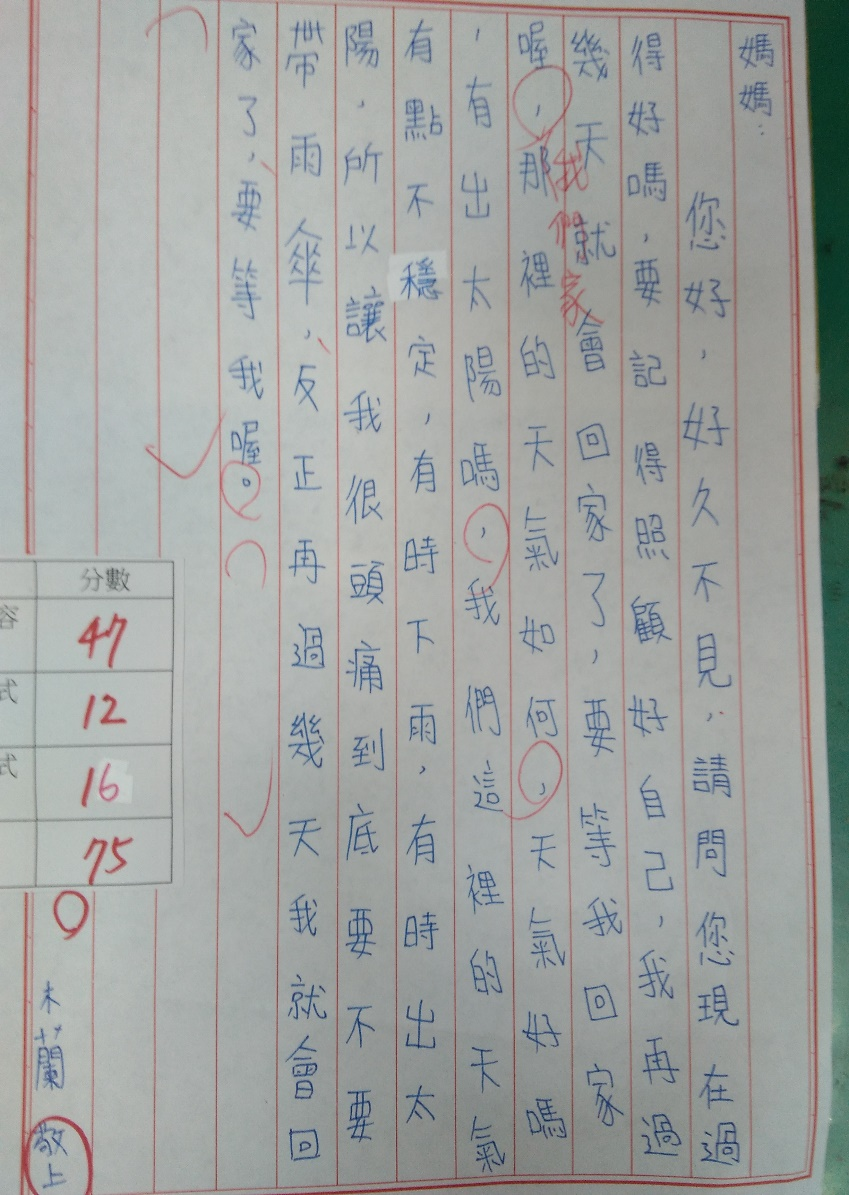 媽媽：
您好，好久不見，請問您現在過
得好嗎，要記得照顧好自己，我再過
幾天就會回家了，要等我回家
我們家
喔，那裡的天氣如何，天氣好嗎
，有出太陽嗎，我們這裡的天氣
有點不穩定，有時下雨，有時出太
陽，所以讓我很頭痛到底要不要
帶雨傘，反正再過幾天我就會回
家了，要等我喔。
木蘭 敬上
分數
容 47
式 12
式 16
75